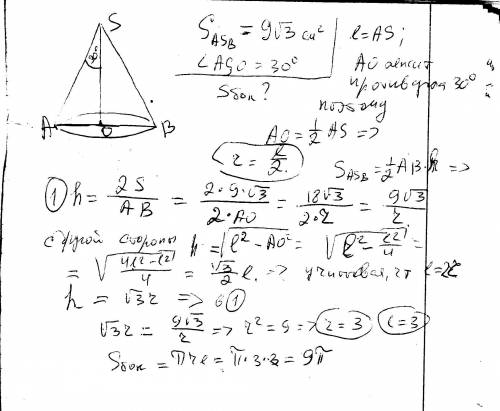 S
30°
A
O
B
S_ASB = 9√3 см²
∠ASO = 30°
Sбок?
l = AS;
AO лежит
против угла 30°
поэтому
AO = 1/2 AS =>
r = l/2.
S_ASB = 1/2 AB·h =>
① h = 2S/AB = 2·9·√3/2·AO = 18√3/2·r = 9√3/r
с другой стороны h = √(l² - AO²) = √(l² - l²/4) =
= √((4l² - l²)/4) = √3/2 l. => учитывая, чт l = 2r
h = √3r => в ①
√3r = 9√3/r => r² = 9 => r = 3 l = 3
Sбок = πrl = π·3·3 = 9π